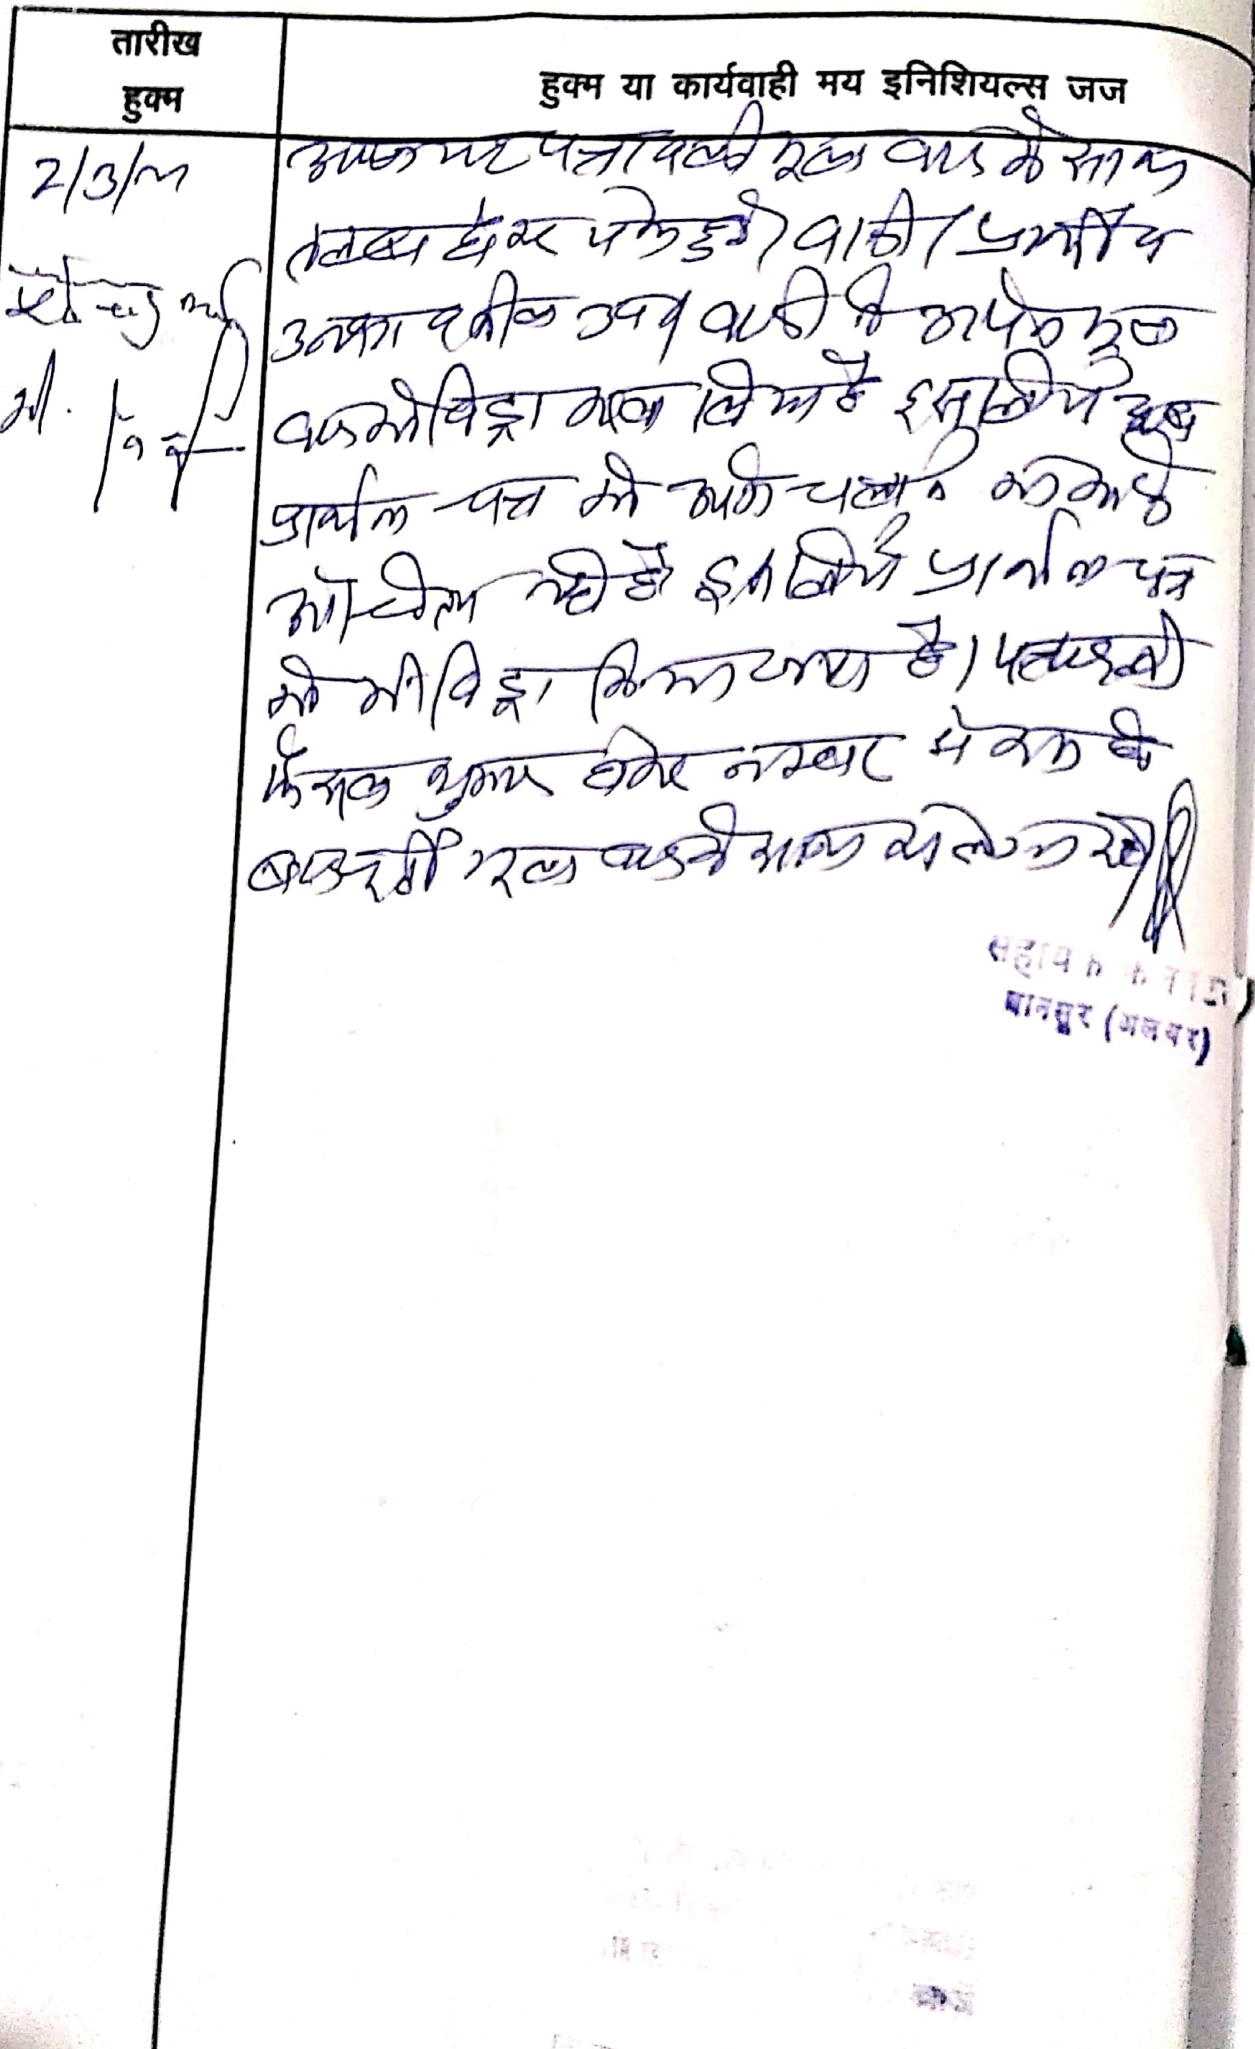 तारीख
हुक्म
हुक्म या कार्यवाही मय इनिशियल्स जज
आज यह पत्रावली मूल वाद के साथ
तलब होकर पेश हुई। वादी / प्रार्थी व
उनका वकील उप० वादी ने अपने मूल
वाद को विड्रा कर लिया है इसलिये अब
प्रार्थना पत्र को आगे चलाने का कोई
औचित्य नही है इसलिये प्रार्थना पत्र
को भी विड्रा किया जाता है। पत्रावली
फैसल शुमार होकर नम्बर से कम हो
बाद मूल वाद के साथ संलग्न रहे।
सहायक कलेक्टर
बानसूर (अलवर)